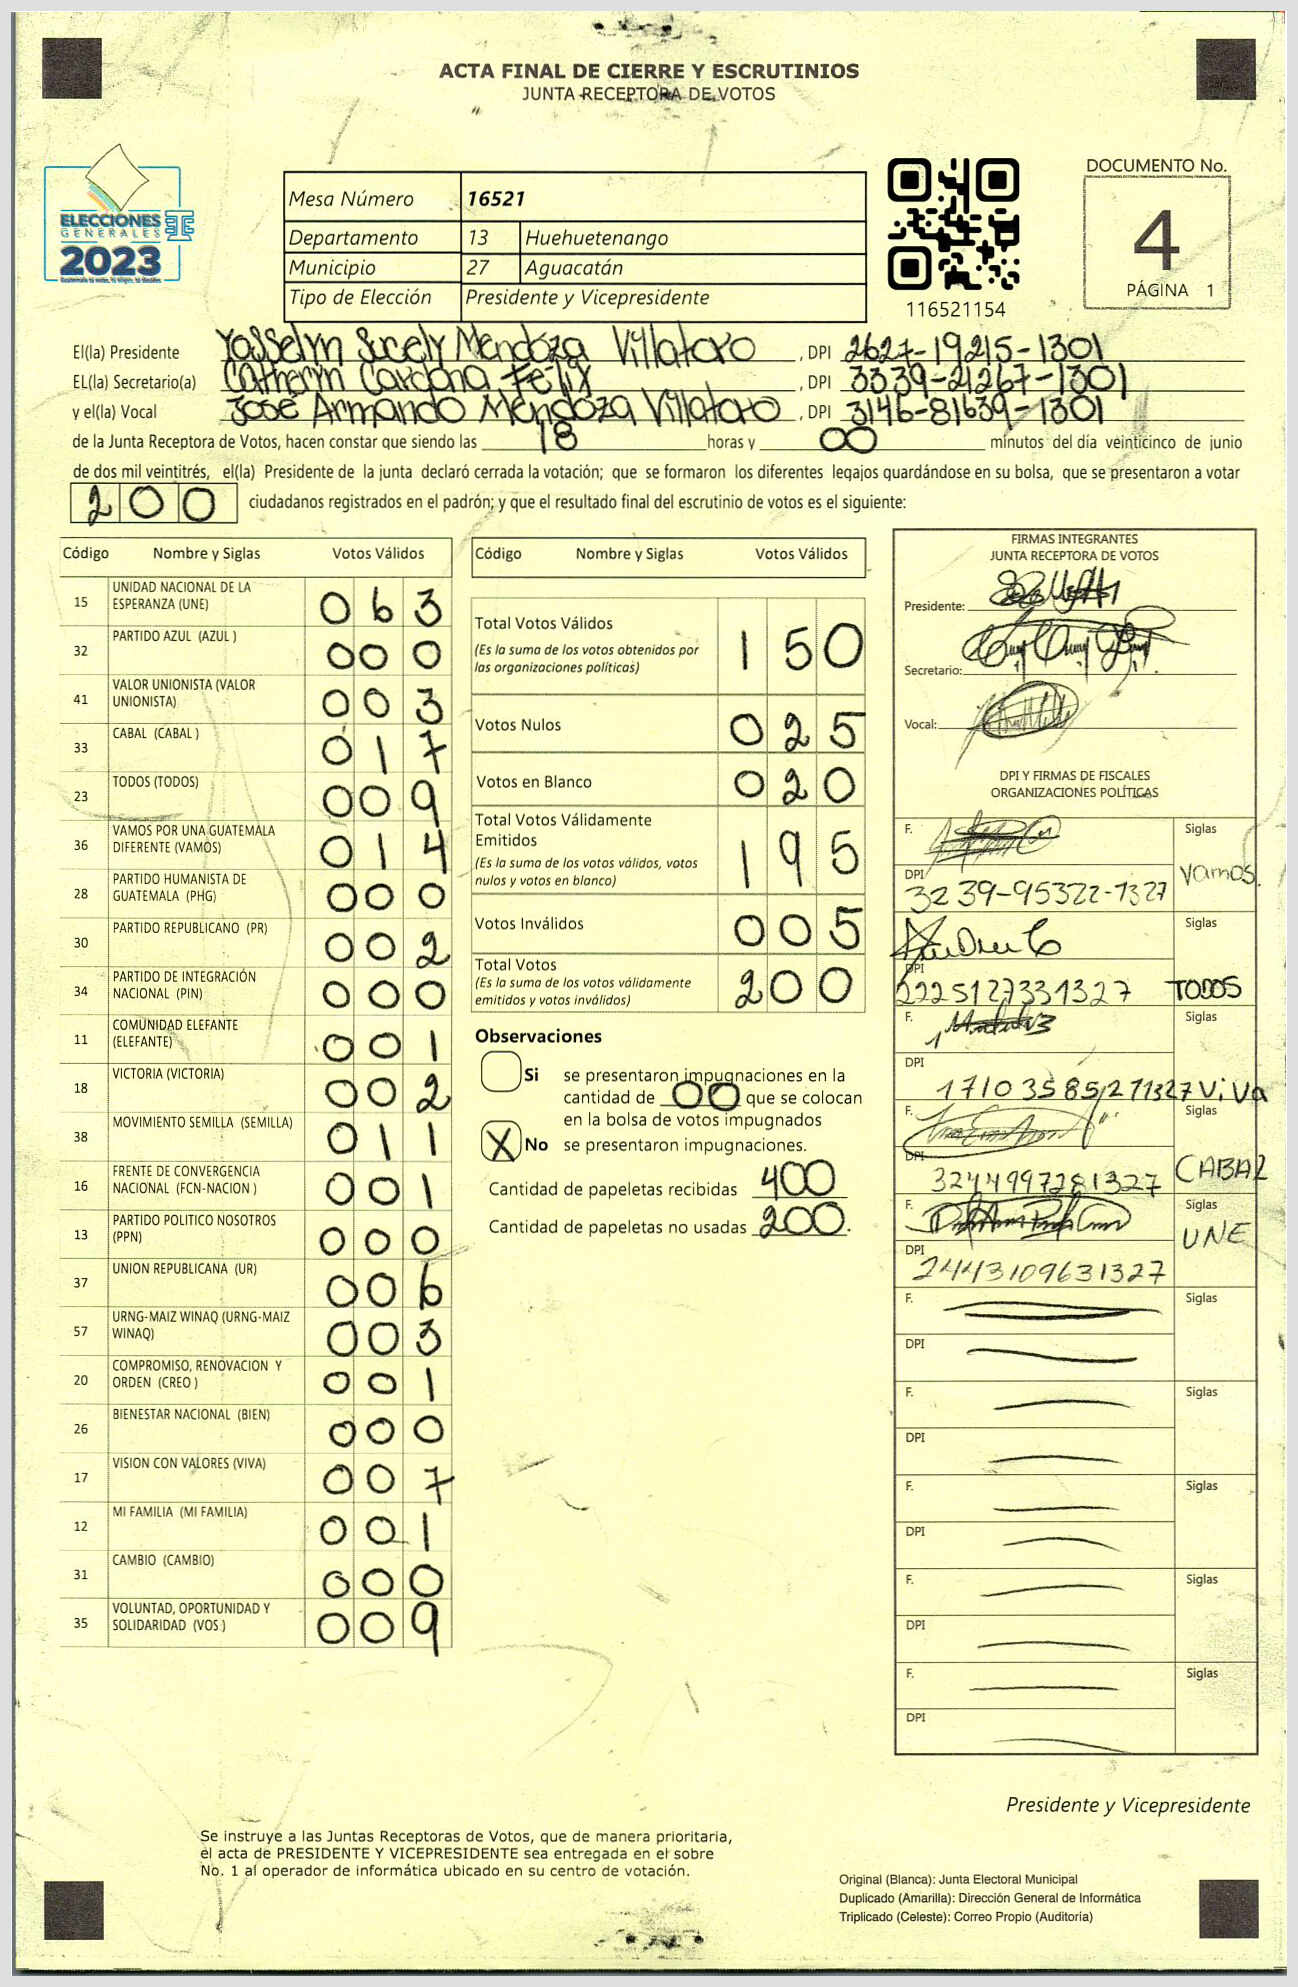 ACTA FINAL DE CIERRE Y ESCRUTINIOS
JUNTA RECEPTORA DE VOTOS
ELECCIONES
GENERALES
2023
Mesa Número 16521
Departamento 13 Huehuetenango
Municipio 27 Aguacatán
Tipo de Elección Presidente y Vicepresidente
116521154
DOCUMENTO No.
4
PÁGINA 1
El(la) Presidente Yosselyn Sucely Mendoza Villatoro, DPI 2627-19215-1301
EL(la) Secretario(a) Catheryn Cardona Felix, DPI 3339-21267-1301
y el(la) Vocal José Armando Mendoza Villatoro, DPI 3146-81639-1301
de la Junta Receptora de Votos, hacen constar que siendo las 18 horas y 00 minutos del día veinticinco de junio
de dos mil veintitrés, el(la) Presidente de la junta declaró cerrada la votación; que se formaron los diferentes legajos guardándose en su bolsa, que se presentaron a votar
200 ciudadanos registrados en el padrón; y que el resultado final del escrutinio de votos es el siguiente:
Código Nombre y Siglas Votos Válidos
15 UNIDAD NACIONAL DE LA ESPERANZA (UNE) 063
32 PARTIDO AZUL (AZUL ) 000
41 VALOR UNIONISTA (VALOR UNIONISTA) 003
33 CABAL (CABAL ) 017
23 TODOS (TODOS) 009
36 VAMOS POR UNA GUATEMALA DIFERENTE (VAMOS) 014
28 PARTIDO HUMANISTA DE GUATEMALA (PHG) 000
30 PARTIDO REPUBLICANO (PR) 002
34 PARTIDO DE INTEGRACIÓN NACIONAL (PIN) 000
11 COMUNIDAD ELEFANTE (ELEFANTE) 001
18 VICTORIA (VICTORIA) 002
38 MOVIMIENTO SEMILLA (SEMILLA) 011
16 FRENTE DE CONVERGENCIA NACIONAL (FCN-NACION ) 001
13 PARTIDO POLITICO NOSOTROS (PPN) 000
37 UNION REPUBLICANA (UR) 006
57 URNG-MAIZ WINAQ (URNG-MAIZ WINAQ) 003
20 COMPROMISO, RENOVACION Y ORDEN (CREO ) 001
26 BIENESTAR NACIONAL (BIEN) 000
17 VISION CON VALORES (VIVA) 007
12 MI FAMILIA (MI FAMILIA) 001
31 CAMBIO (CAMBIO) 000
35 VOLUNTAD, OPORTUNIDAD Y SOLIDARIDAD (VOS ) 009
Código Nombre y Siglas Votos Válidos
Total Votos Válidos 150
(Es la suma de los votos obtenidos por
las organizaciones políticas)
Votos Nulos 025
Votos en Blanco 020
Total Votos Válidamente
Emitidos 195
(Es la suma de los votos válidos, votos
nulos y votos en blanco)
Votos Inválidos 005
Total Votos 200
(Es la suma de los votos válidamente
emitidos y votos inválidos)
Observaciones
Si se presentaron impugnaciones en la
cantidad de 00 que se colocan
en la bolsa de votos impugnados
X No se presentaron impugnaciones.
Cantidad de papeletas recibidas 400
Cantidad de papeletas no usadas 200.
FIRMAS INTEGRANTES
JUNTA RECEPTORA DE VOTOS
Presidente:
Secretario:
Vocal:
DPI Y FIRMAS DE FISCALES
ORGANIZACIONES POLÍTICAS
F. Siglas
DPI 3239-95322-1327 Vamos.
F. Siglas
DPI 2225127331327 TODOS
F. Siglas
DPI 1710358521327 ViVa
F. Siglas
DPI 3244997281327 CABAL
F. Siglas
DPI 2443109631327 UNE
F. Siglas
DPI
F. Siglas
DPI
F. Siglas
DPI
F. Siglas
DPI
F. Siglas
DPI
Presidente y Vicepresidente
Se instruye a las Juntas Receptoras de Votos, que de manera prioritaria,
el acta de PRESIDENTE Y VICEPRESIDENTE sea entregada en el sobre
No. 1 al operador de informática ubicado en su centro de votación.
Original (Blanca): Junta Electoral Municipal
Duplicado (Amarilla): Dirección General de Informática
Triplicado (Celeste): Correo Propio (Auditoria)